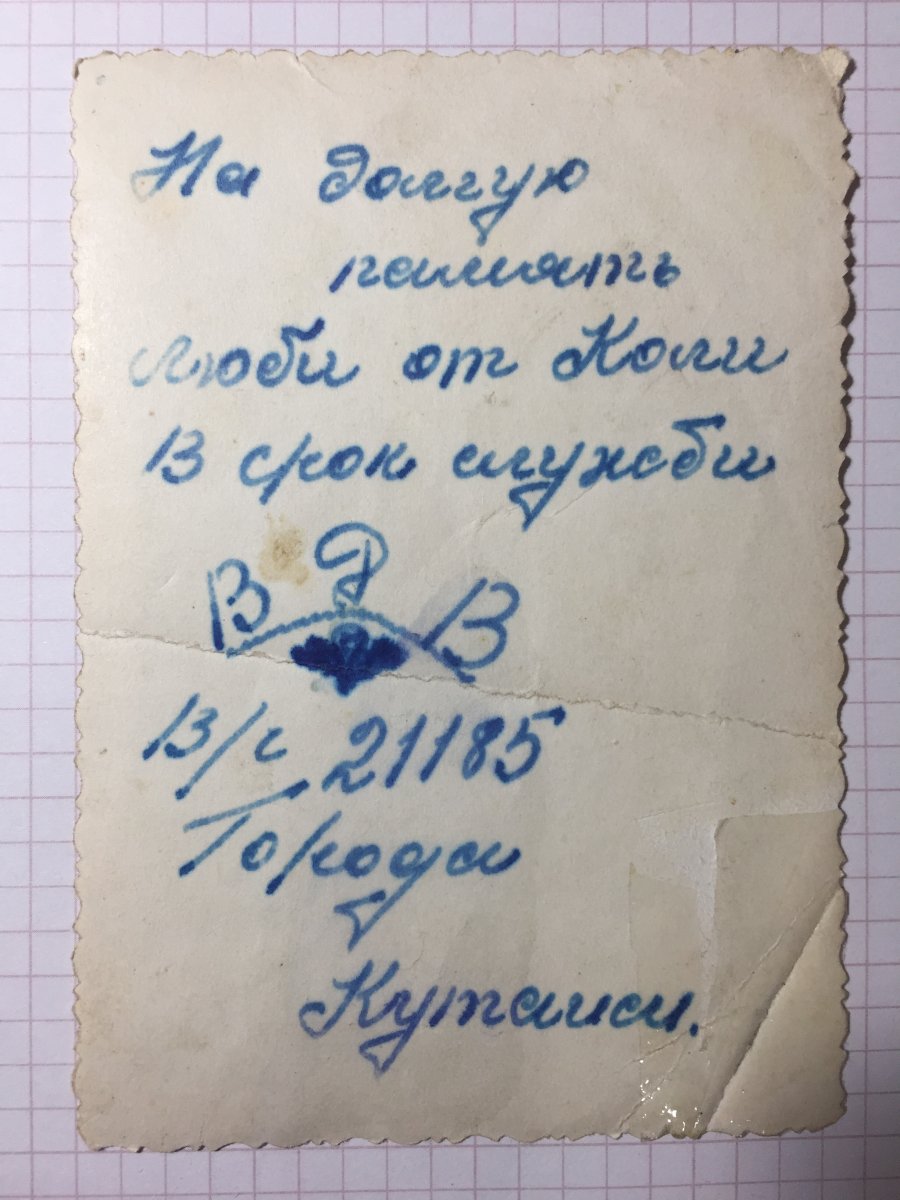 На долгую
память
Люби от Коли
В срок службы
В Д В
В/ч 21185
Города
Кутаиси.